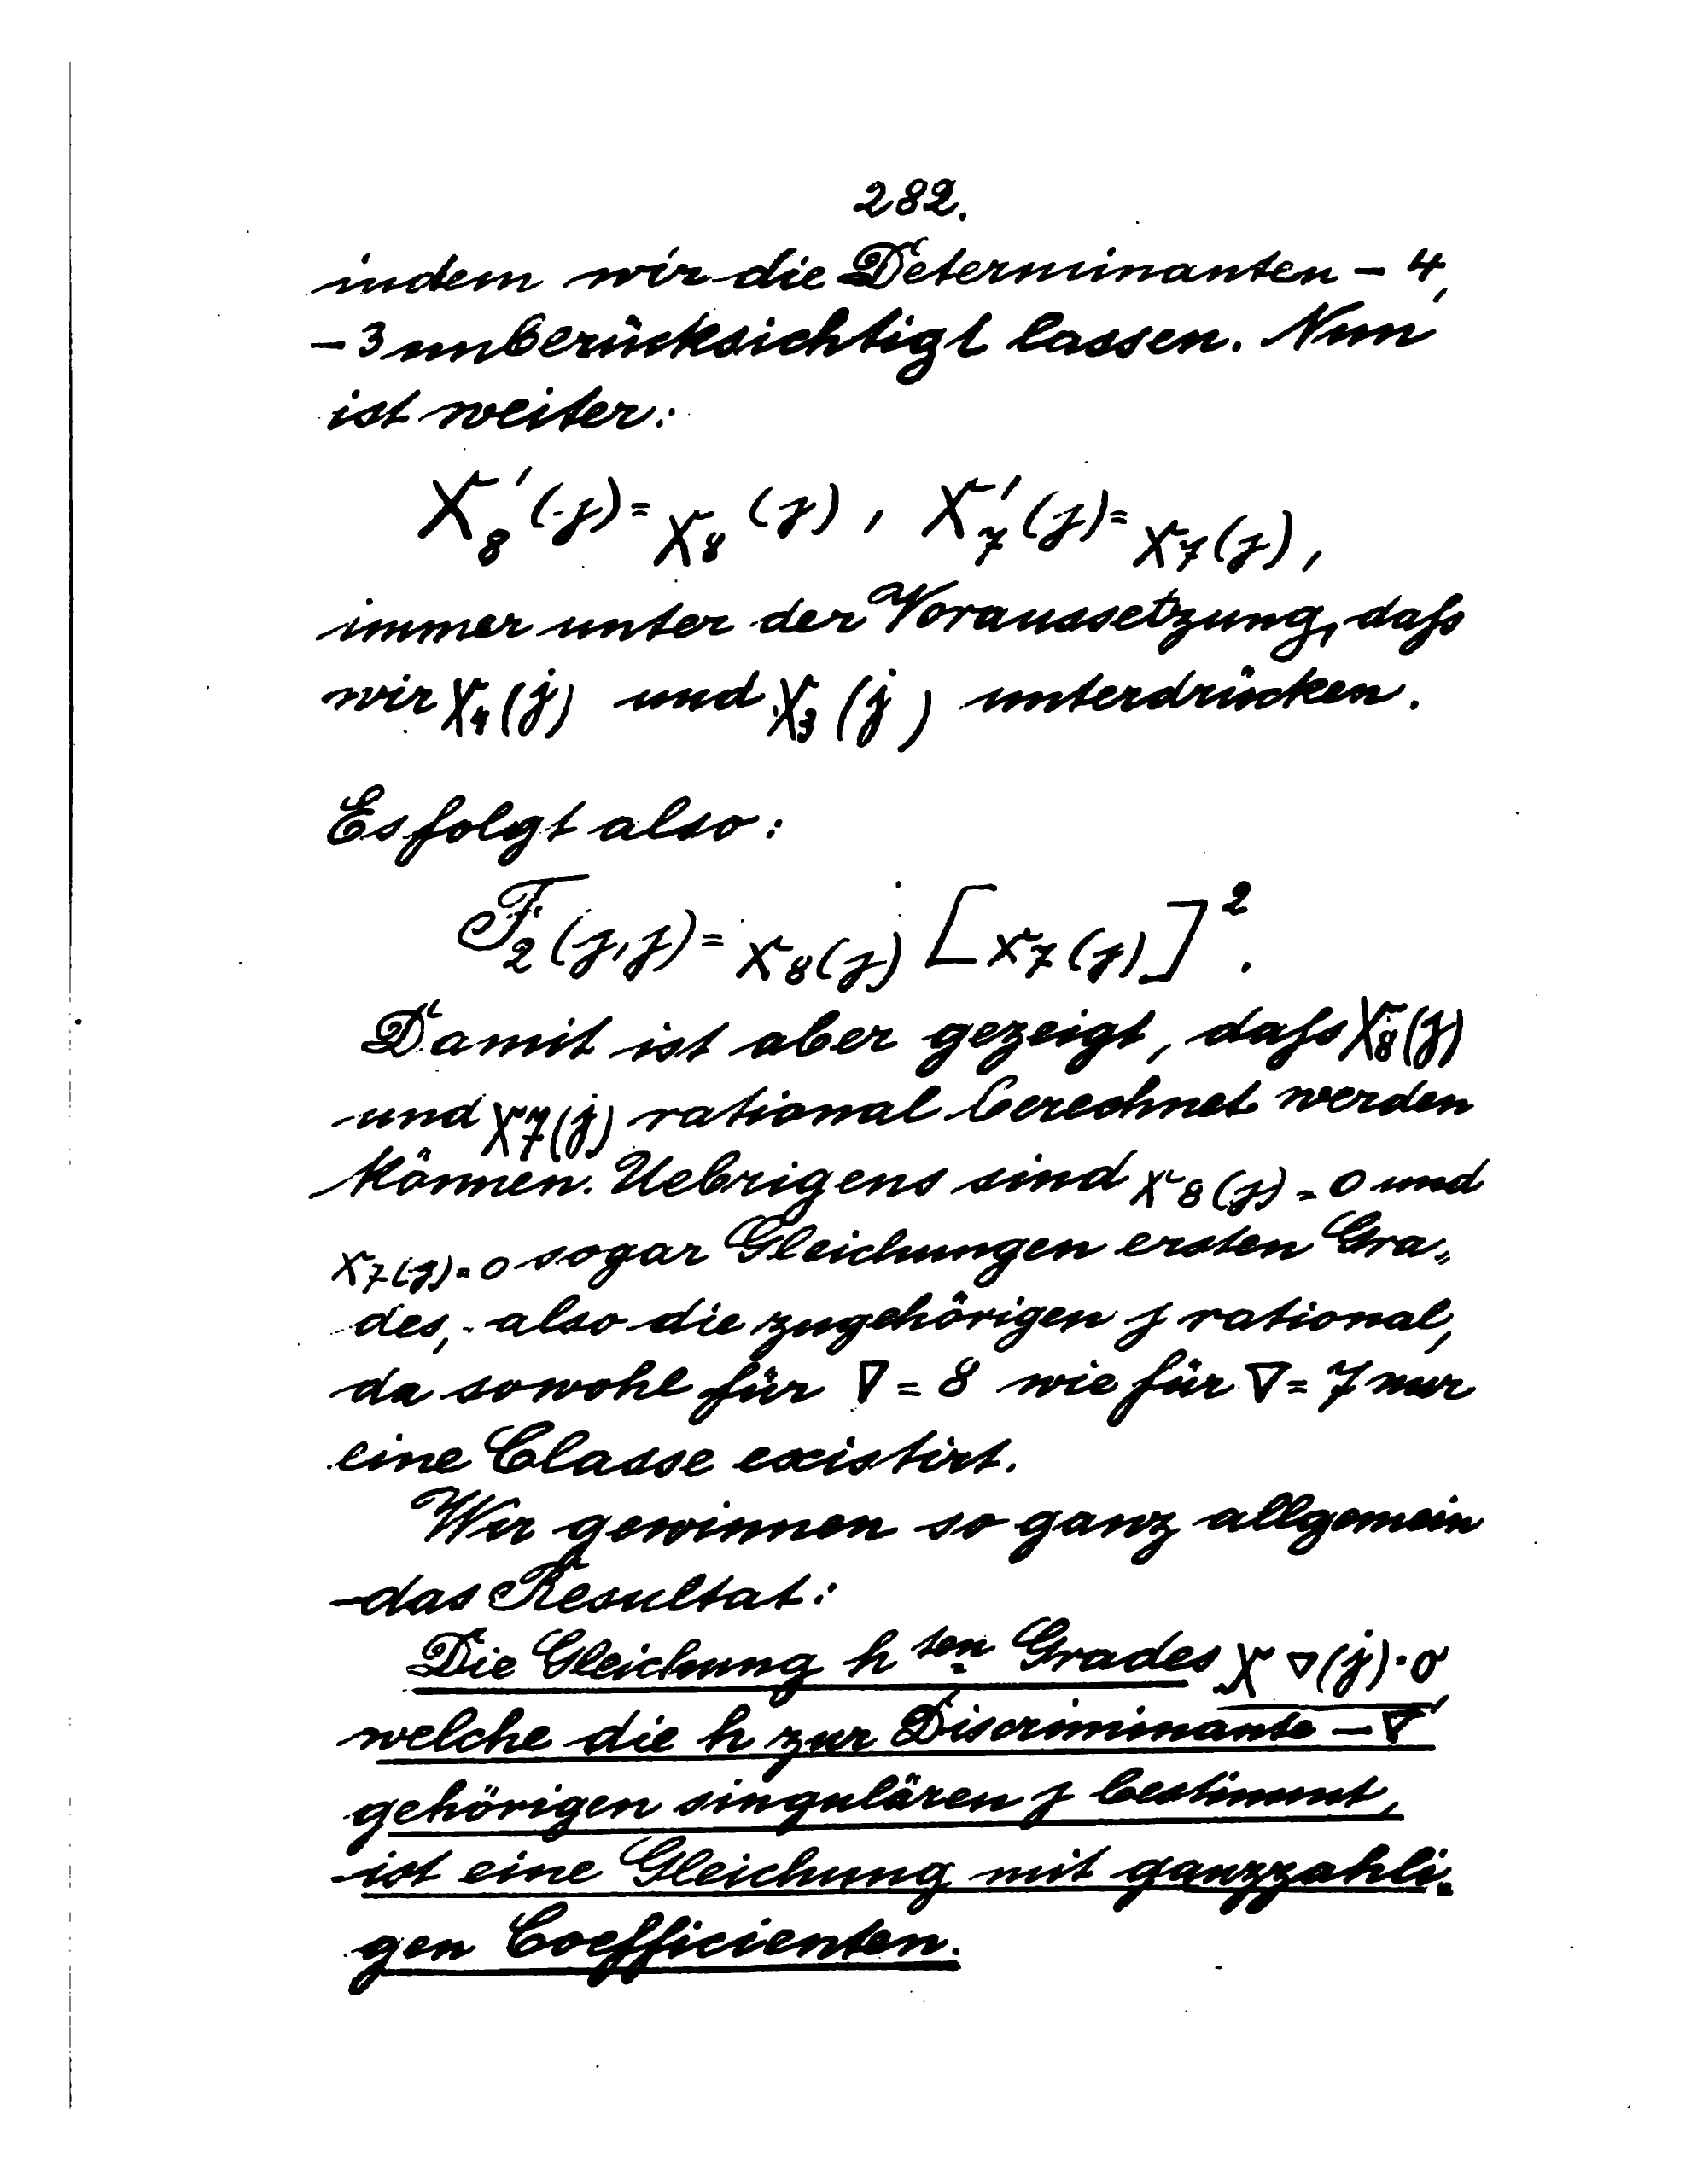 282.
indem wir die Determinanten - 4,
- 3 unberücksichtigt lassen. Nun
ist weiter:
X₈'(j) = X₈(j), X₇'(j) = X₇(j),
immer unter der Voraussetzung, daſs
wir X₄(j) und X₃(j) unterdrücken.
Es folgt also:
F₂(j,j) = X₈(j) [X₇(j)]².
Damit ist aber gezeigt, daſs X₈(j)
und X₇(j) rational berechnet werden
können. Uebrigens sind X₈(j) = 0 und
X₇(j) = 0 sogar Gleichungen ersten Gra„
des, also die zugehörigen j rational,
da sowohl für ∇ = 8 wie für ∇ = 7 nur
eine Classe existirt.
Wir gewinnen so ganz allgemein
das Resultat:
Die Gleichung h ten Grades X∇(j) = 0,
welche die h zur Discriminante - ∇
gehörigen singulären j bestimmt,
ist eine Gleichung mit ganzzahli„
gen Coefficienten.